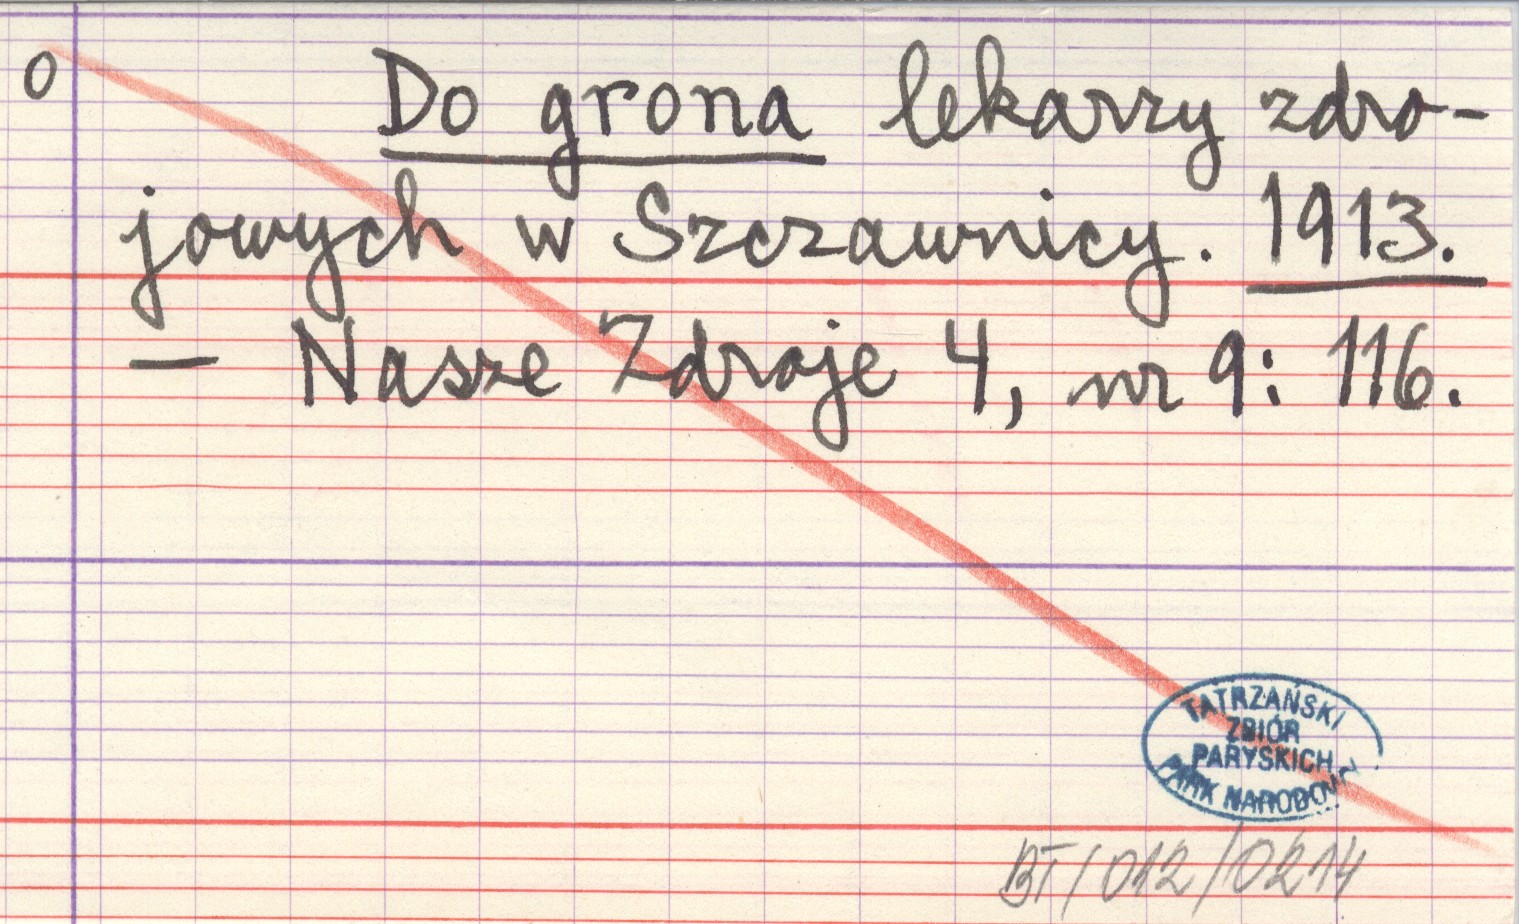 o
Do grona lekarzy zdro-
jowych w Szczawnicy. 1913.
— Nasze Zdroje 4, nr 9: 116.
TATRZAŃSKI
ZBIÓR
PARYSKICH
PARK NARODOWY
BT/012/0214